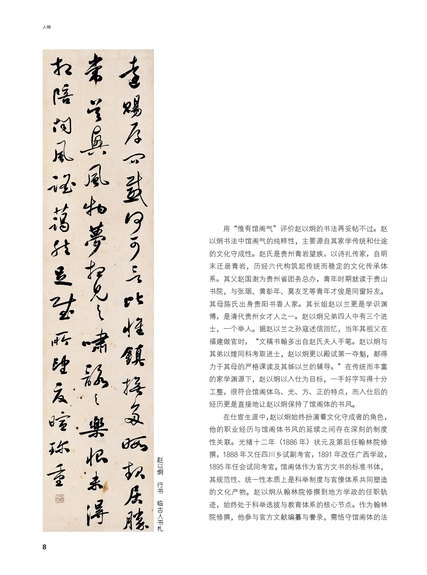 人物
賜存問感何可言比惟鎮撫多暇起居勝
常風物夢想見之嘯歌之樂恨未得
相陪風謠藹然足所珍重
赵以炯 行书 临古人书札
用“惟有馆阁气”评价赵以炯的书法再妥帖不过。赵
以炯书法中馆阁气的纯粹性，主要源自其家学传统和仕途
的文化守成性。赵氏是贵州青岩望族，以诗礼传家，自明
末迁居青岩，历经六代构筑起传统而稳定的文化传承体
系。其父赵国澍为贵州省团务总办，青年时期就读于贵山
书院，与张琚、黄彭年、莫友芝等青年才俊是同窗好友。
其母陈氏出身贵阳书香人家。其长姐赵以兰更是学识渊
博，是清代贵州女才人之一。赵以炯兄弟四人中有三个进
士，一个举人。据赵以兰之孙寇述信回忆，当年其祖父在
福建做官时，“文稿书翰多出自赵氏夫人手笔。赵以炯与
其弟以煃同科考取进士，赵以炯更以殿试第一夺魁，都得
力于其母的严格课读及其姊以兰的辅导。”在传统而丰富
的家学渊源下，赵以炯以入仕为目标，一手好字写得十分
工整，很符合馆阁体乌、光、方、正的特点，而入仕后的
经历更是直接地让赵以炯保持了馆阁体的书风。
在仕宦生涯中，赵以炯始终扮演着文化守成者的角色，
他的职业经历与馆阁体书风的延续之间存在深刻的制度
性关联。光绪十二年（1886年）状元及第后任翰林院修
撰，1888年又任四川乡试副考官，1891年改任广西学政，
1895年任会试同考官。馆阁体作为官方文书的标准书体，
其规范性、统一性本质上是科举制度与官僚体系共同塑造
的文化产物。赵以炯从翰林院修撰到地方学政的任职轨
迹，始终处于科举选拔与教育体系的核心节点。作为翰林
院修撰，他参与官方文献编纂与誊录，需恪守馆阁体的法
8